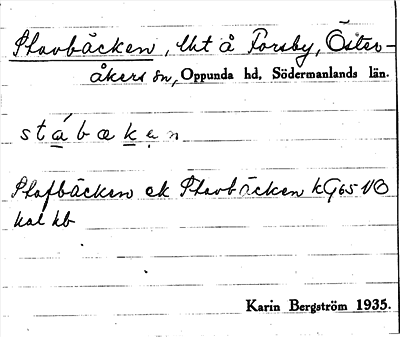 Stavbäcken, Utt å Forsby, Öster-
åkers sn, Oppunda hd, Södermanlands län.
stábæken
Stafbäcken ek Stavbäcken kG65 NO
kal kb
Karin Bergström 1935.